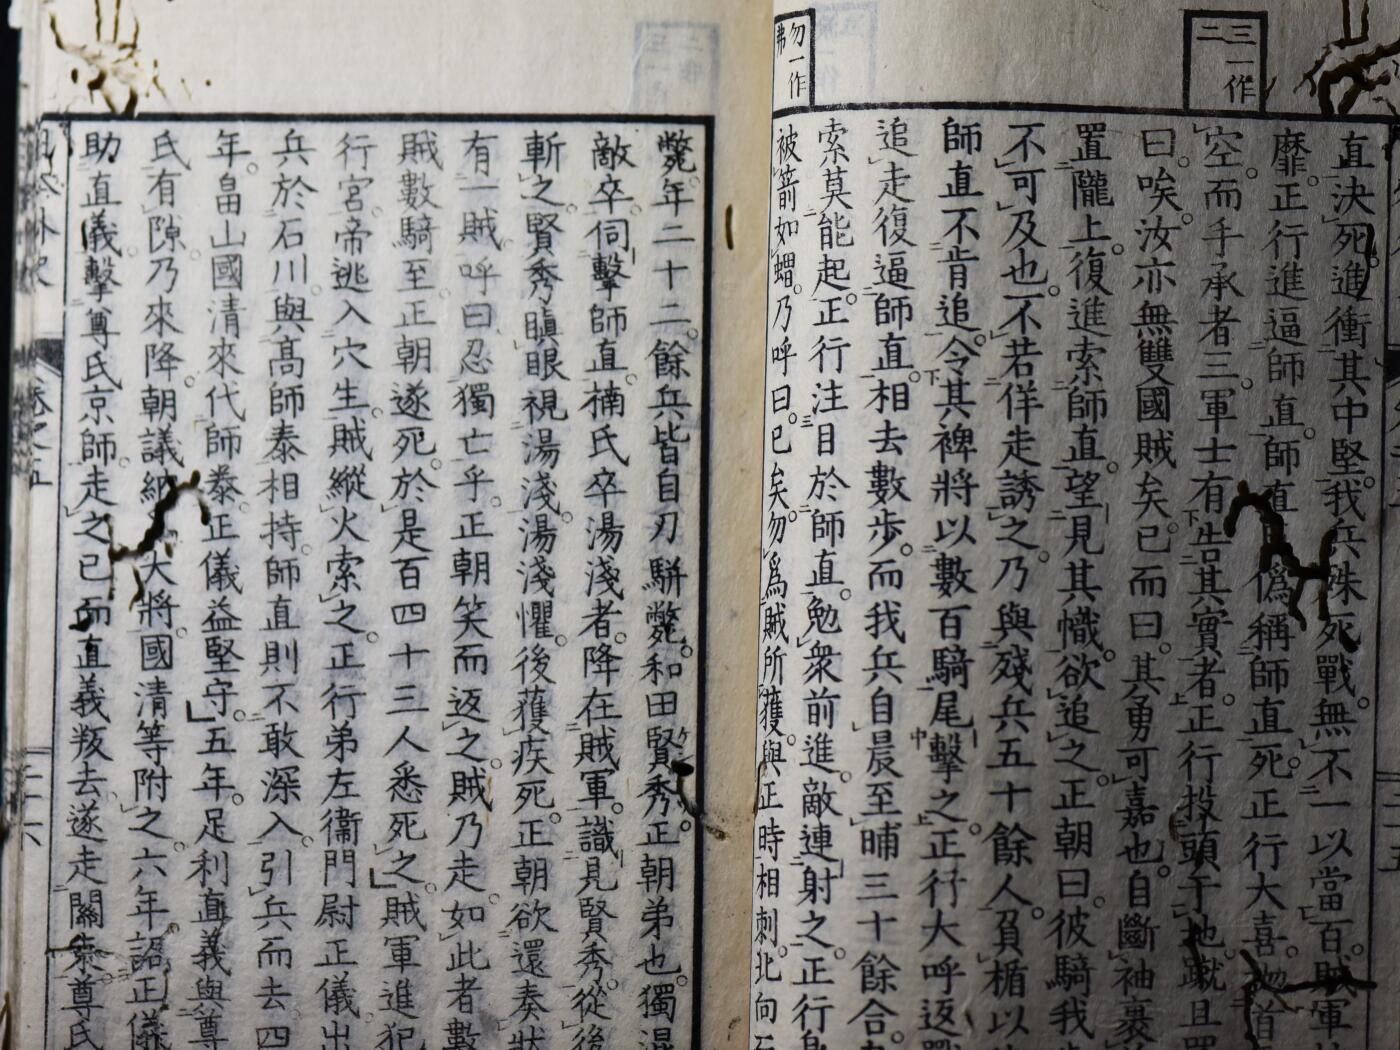 三一作
二
勿一作
弗
直決死進衝其中堅。我兵殊死戰。無不一以當百。賊軍
靡。正行進逼師直。師直 僞稱師直死。正行大喜。 首
空。而手承者三。軍士有告其實者。正行投頭于地蹴且罵
曰。唉。汝亦無雙國賊矣。已而曰。其勇可嘉也。自斷袖裹
置隴上。復進索師直。望見其幟。欲追之。正朝曰。彼騎我
不可及也。不若佯走誘之。乃與殘兵五十餘人。負楯以
師直不肯追。令其裨將以數百騎尾擊之。正行大呼返戰
追走復逼師直。相去數步。而我兵自晨至晡三十餘合。
索莫能起。正行注目於師直。勉衆前進。敵連射之。正行身
被箭如蝟。乃呼曰。已矣。勿爲賊所獲。與正時相刺。北向
斃。年二十二。餘兵皆自刃駢斃。和田賢秀。正朝弟也。獨混
敵卒。伺擊師直。楠氏卒湯淺者。降在賊軍。識見賢秀。從後
斬之。賢秀瞋眼視湯淺。湯淺懼。後獲疾死。正朝欲還奏狀
有一賊呼曰。忍獨亡乎。正朝笑而返之。賊乃走。如此者數
賊數騎至。正朝遂死。於是百四十三人悉死之。賊軍進犯
行宮。帝逃入穴生。賊縱火索之。正行弟左衞門尉正儀出
兵於石川。與高師泰相持。師直則不敢深入。引兵而去。四
年。畠山國清來代師泰。正儀益堅守。五年。足利直義與尊
氏有隙。乃來降。朝議納 大將。國清等附之。六年。詔正儀
助直義。擊尊氏京師。走之。已而直義叛去。遂走關東。尊氏